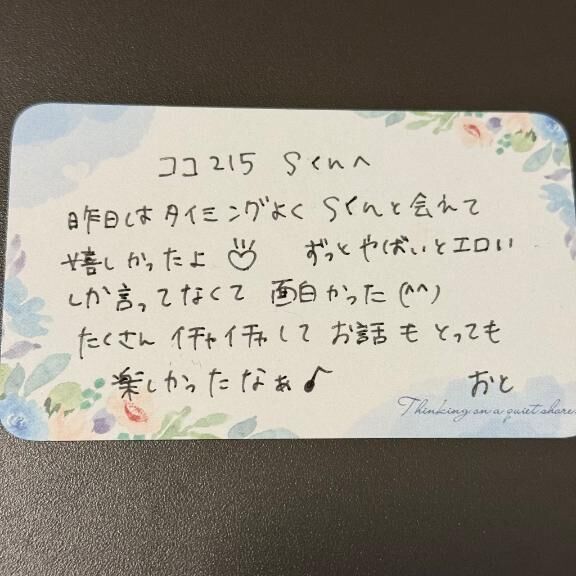 ココ215 Sくんへ
昨日はタイミングよく Sくんと会えて
嬉しかったよ♡ ずっとやばいとエロい
しか言ってなくて 面白かった(^^)
たくさん イチャイチャして お話も とっても
楽しかったなぁ♪ おと
Thinking on a quiet shore.